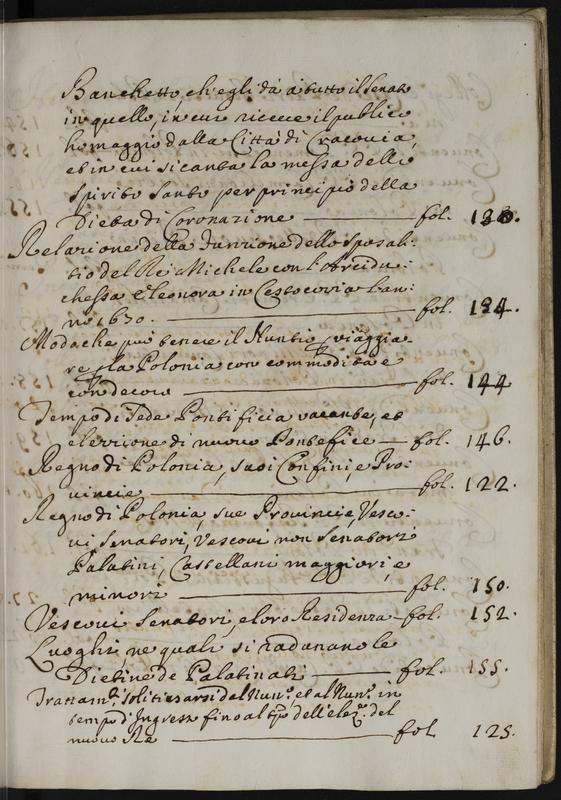 Banchetto, ch'egli dà à tutto il Senato
in quello, in cui riceve il publico
homaggio dalla Città di Cracovia,
et in cui si canta la messa dello
Spirito Santo per principio della
Dieta di Coronazione fol. 130.
Relazione della Funzione dello Sposali-
tio del Re Michele con l'Arcidu:
chessa Eleonora in Cestocovia l'an:
no 1670. fol. 134.
Modo che può tenere il Nuntio p viaggia
re p la Polonia con commodità e
con decoro fol. 144
Tempo di Sede Pontificia vacante, et
elezzione di nuovo Pontefice fol. 146.
Regno di Polonia, suoi Confini, e Pro:
vincie fol. 122.
Regno di Polonia, sue Provincie, Vesco:
vi, Senatori, Vescovi non Senatori
Palatini, Castellani maggiori, e
minori fol. 150.
Vescovi Senatori, e loro Residenza fol. 152.
Luoghi, ne quali si radunano le
Dietine de Palatinati fol. 155.
Trattam.ti soliti usarsi dal Nun.o, et al Nun.o in
tempo d'Ingresso fino al tpo dell'elez.e del
nuovo Re fol. 125.